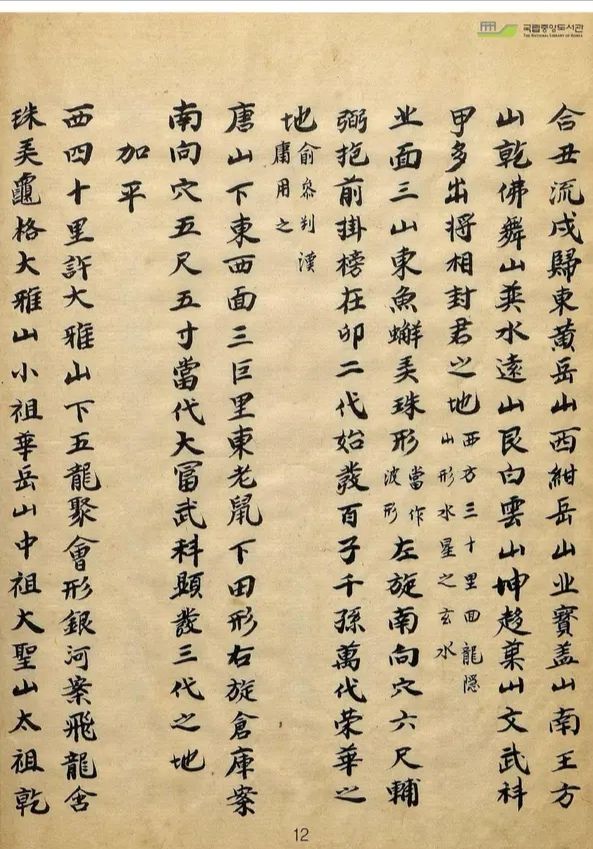 국립중앙도서관
THE NATIONAL LIBRARY OF KOREA
合丑流戌歸東黃岳山西紺岳山北寶盖山南王方
山乾佛舞山巽水遠山艮白雲山坤趍菓山文武科
甲多出將相封君之地
西方三十里回龍隱
山形水星之玄水
北面三山東魚懈弄珠形
當作
波形
左旋南向穴六尺輔
弼抱前掛榜在卯二代始發百子千孫萬代荣華之
地
俞叅判漢
庸用之
唐山下東西面三巨里東老鼠下田形右旋倉庫案
南向穴五尺五寸當代大冨武科顯發三代之地
加平
西四十里許大雅山下五龍聚會形銀河案飛龍舍
珠美龜格大雅山小祖華岳山中祖大聖山太祖乾
12